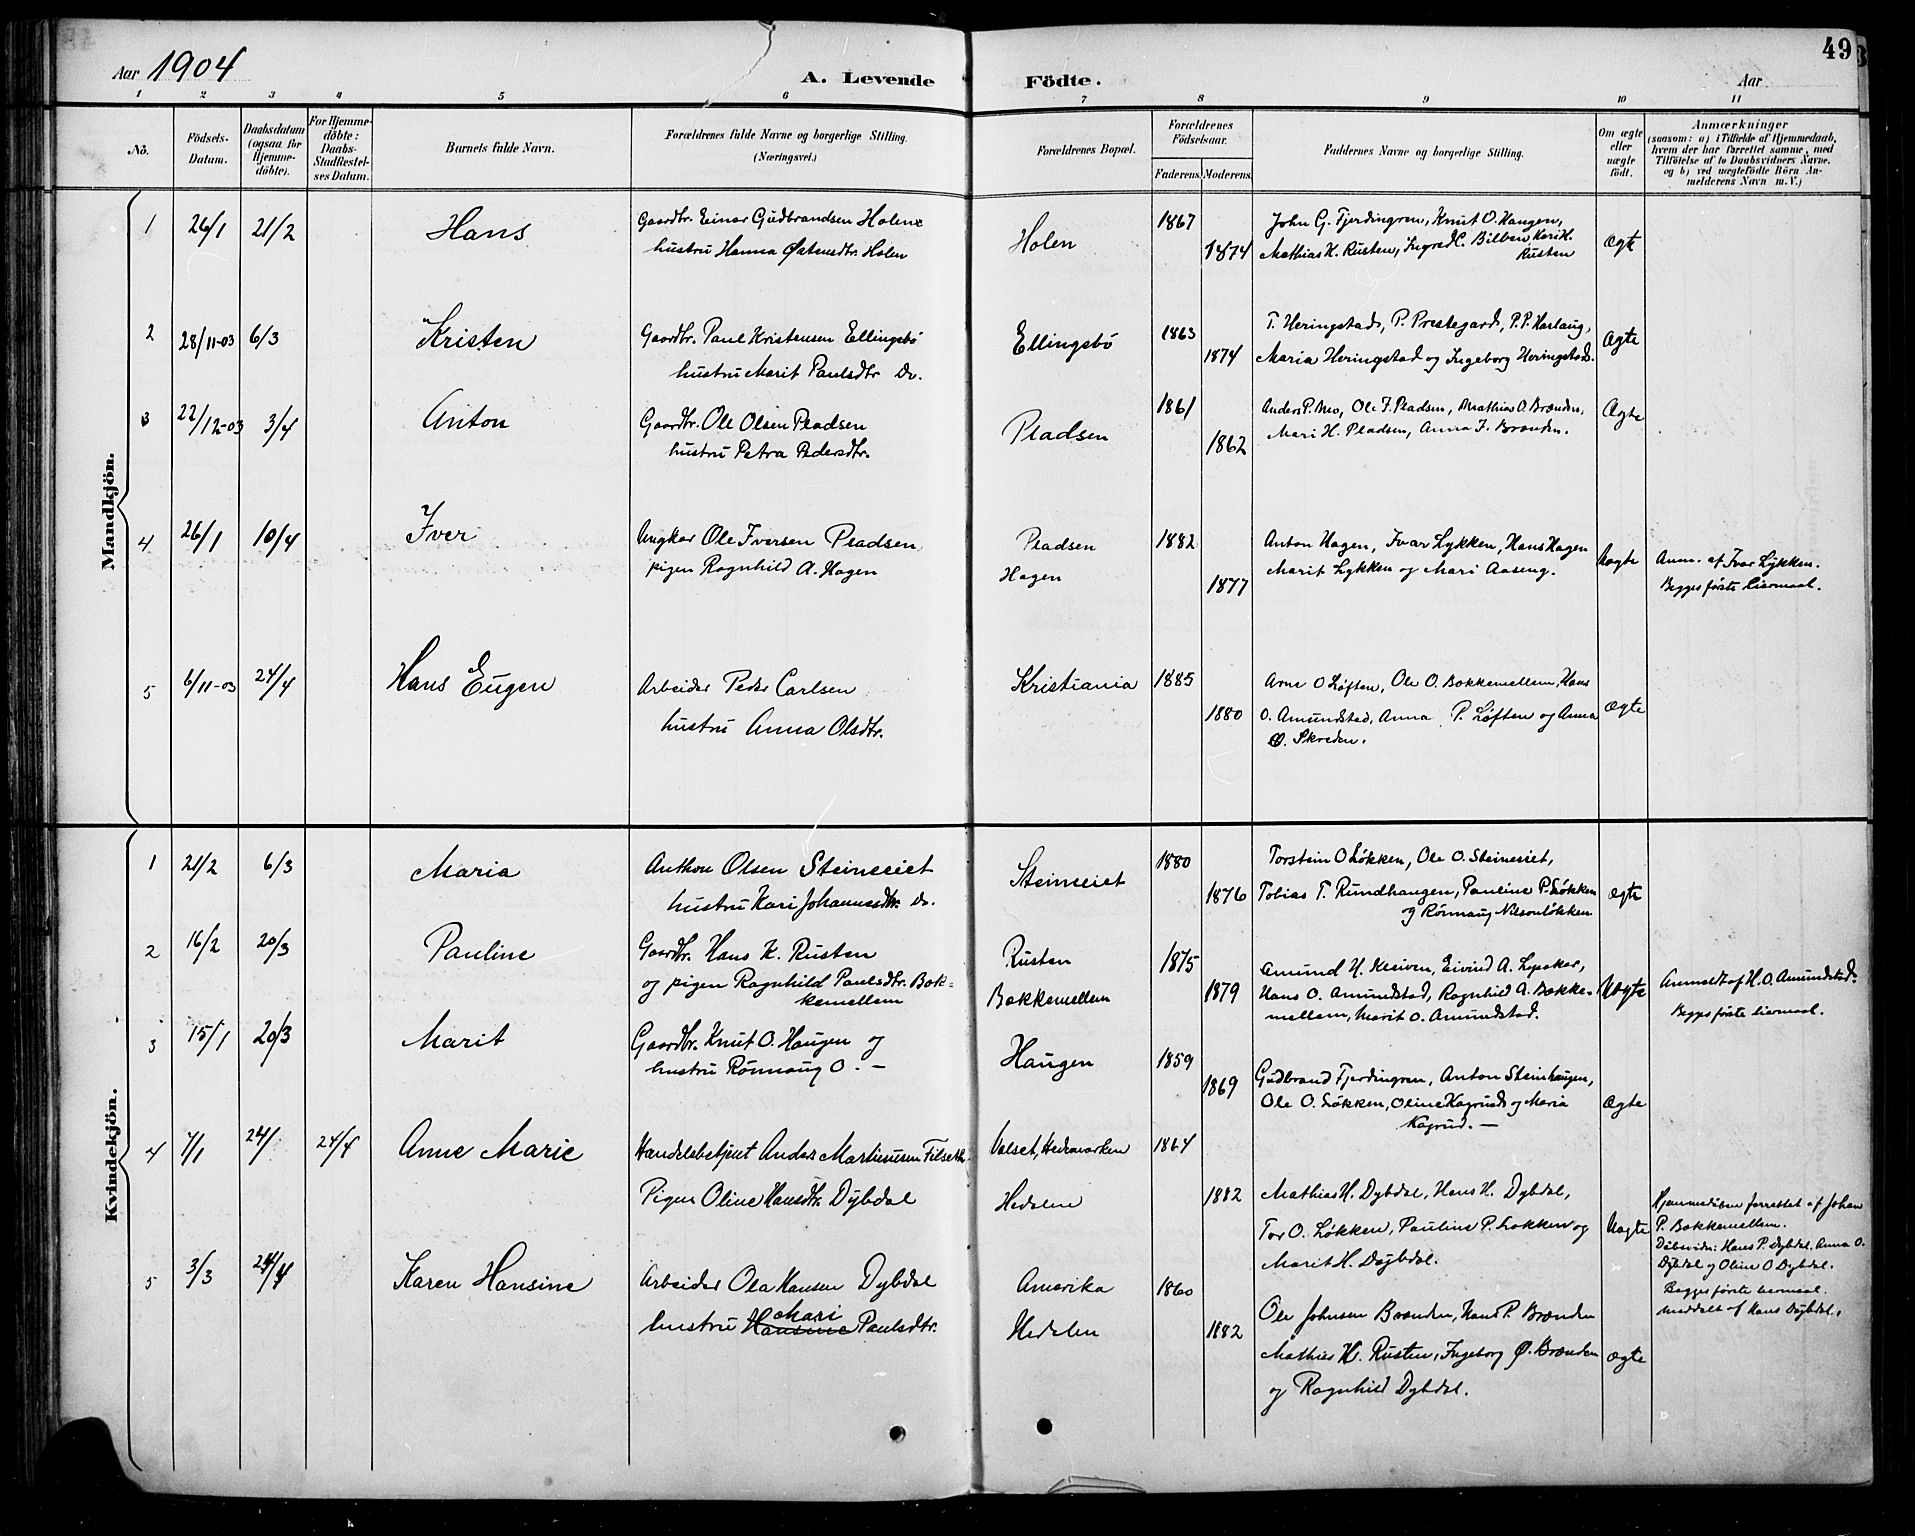 Aar 1904
A. Levende Födte.
Aar
49
1 2 3 4 5 6 7 8 9 10 11
No.
Födsels-
Datum.
Daabsdatum
(ogsaa for
Hjemme-
döbte).
For Hjemme-
döbte:
Daabs-
Stadfæstel-
ses Datum.
Barnets fulde Navn.
Forældrenes fulde Navne og borgerlige Stilling.
(Næringsvei.)
Forældrenes Bopæl.
Forældrenes
Födselsaar.
Faderens. Moderens.
Faddernes Navne og borgerlige Stilling.
Om ægte
eller
uægte
født.
Anmærkninger
(saasom: a) i Tilfælde af Hjemmedaab,
hvem der har forrettet samme, med
Tilföielse af to Daabsvidners Navne.
og b) ved uægtefödte Börn An-
melderens Navn m. V.)
Mandkjön.
1 26/1 21/2 Hans
Gaardbr. Einar Gudbrandsen Holen
hustru Hanna Østensdtr. Holen
Holen
1867
1874
John G. Fjerdingren, Knut O. Haugen,
Mathias K. Rusten, Ingrid C. Bilben, Kari H.
Rusten
Ægte
2 28/11-03 6/3 Kristen
Gaardbr. Paul Kristensen Ellingsbö
hustru Marit Paulsdtr Do.
Ellingsbö
1863
1874
T. Heringstad, P. Prestegard, P. P. Haslaug,
Maria Heringstad og Ingeborg Heringstad.
Ægte
3 22/12-03 3/4 Anton
Gaardbr. Ole Olsen Pladsen
hustru Petra Pedersdtr.
Pladsen
1861
1862
Anders P. Mo, Ole J. Pladsen, Mathias O. Brænden,
Mari H. Pladsen, Anna J. Brænden.
Ægte
4 26/1 10/4 Iver
Ungkar Ole Iversen Pladsen
pigen Ragnhild A. Hagen
Pladsen
Hagen
1882
1877
Anton Hagen, Ivar Lykken, Hans Hagen
Marit Lykken og Mari Aaseng.
Uægte
Anm. af Ivar Lykken.
Begges første leiermaal.
5 6/11-03 24/4 Hans Eugen
Arbeider Peder Carlsen
hustru Anna Olsdtr.
Kristiania
1885
1880
Arne O Løften, Ole O. Bokkemellem, Hans
O. Amundstad, Anna P. Løften og Anna
O. Skreden.
Ægte
Kvindekjön.
1 21/2 6/3 Maria
Anthon Olsen Steinseiet
hustru Kari Johannesdtr. Do.
Steinseiet
1880
1876
Torstein O Løkken, Ole O. Steinseiet,
Tobias T. Rundhaugen, Pauline P. Løkken
og Rönnaug Nilsen Løkken
Ægte
2 16/2 20/3 Pauline
Gaardbr. Hans K. Rusten
og pigen Ragnhild Paulsdtr. Bok-
kemellem
Rusten
Bokkemellem
1875
1879
Amund H. Kleiven, Eivind A.
Hans O. Amundstad, Ragnhild A. Bokke-
mellem, Marit O. Amundstad.
Uægte
Anmeldt af H. O. Amundstad.
Begges første leiermaal.
3 15/1 20/3 Marit
Gaardbr. Knut O. Haugen og
hustru Rönnaug O. —
Haugen
1859
1869
Gudbrand Fjerdingren, Anton Steinhaugen,
Ole O. Løkken, Oline Kagrud og Maria
Kagrud. —
Ægte
4 7/1 24/ 24/4 Anne Marie
Handelsbetjent Anders Martinusen Filseth
Pigen Oline Hansdtr. Dybdal
Valset, Hedemarken
Hedalen
1864
1882
Mathias H. Dybdal, Hans H. Dybdal,
Tor O. Løkken, Pauline P. Løkken og
Marit H. Dybdal.
Uægte
Hjemmedåben forrettet af Johan
P. Bokkemellem.
Dåbsvidn: Hans P. Dybdal, Anna O.
Dybdal og Oline O Dybdal.
Begges første leiermaal.
meddelt af Hans Dybdal.
5 3/3 24/4 Karen Hansine
Arbeider Ola Hansen Dybdal
Mari
hustru Hansine Paulsdtr.
Amerika
Hedalen
1860
1882
Ole Johnsen Brænden, Hans P. Brænden
Mathias H. Rusten, Ingeborg O. Brænden
og Ragnhild Dybdal.
Ægte